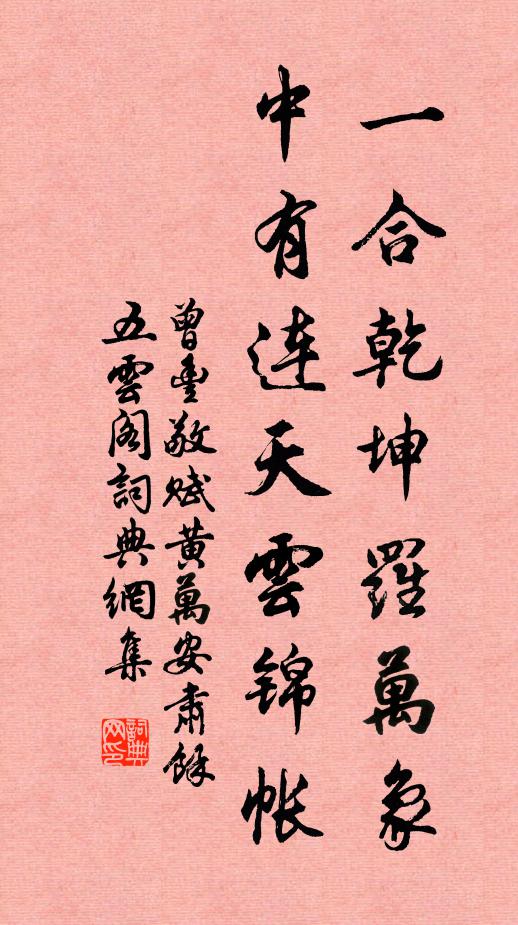 一合乾坤羅萬象
中有連天雲錦帳
曾豊敬賦黃萬安肅餘
五雲閣詞典網集
詞典網印